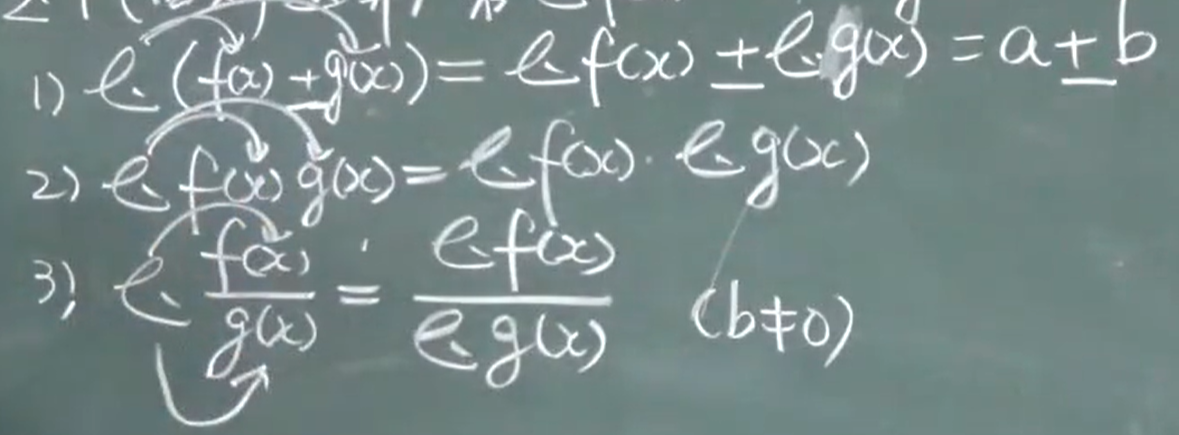 1) l. (f(x) ± g(x)) = l. f(x) ± l. g(x) = a ± b
2) l. f(x) g(x) = l. f(x) · l. g(x)
3) l. f(x)/g(x) = l. f(x)/l. g(x) (b≠0)